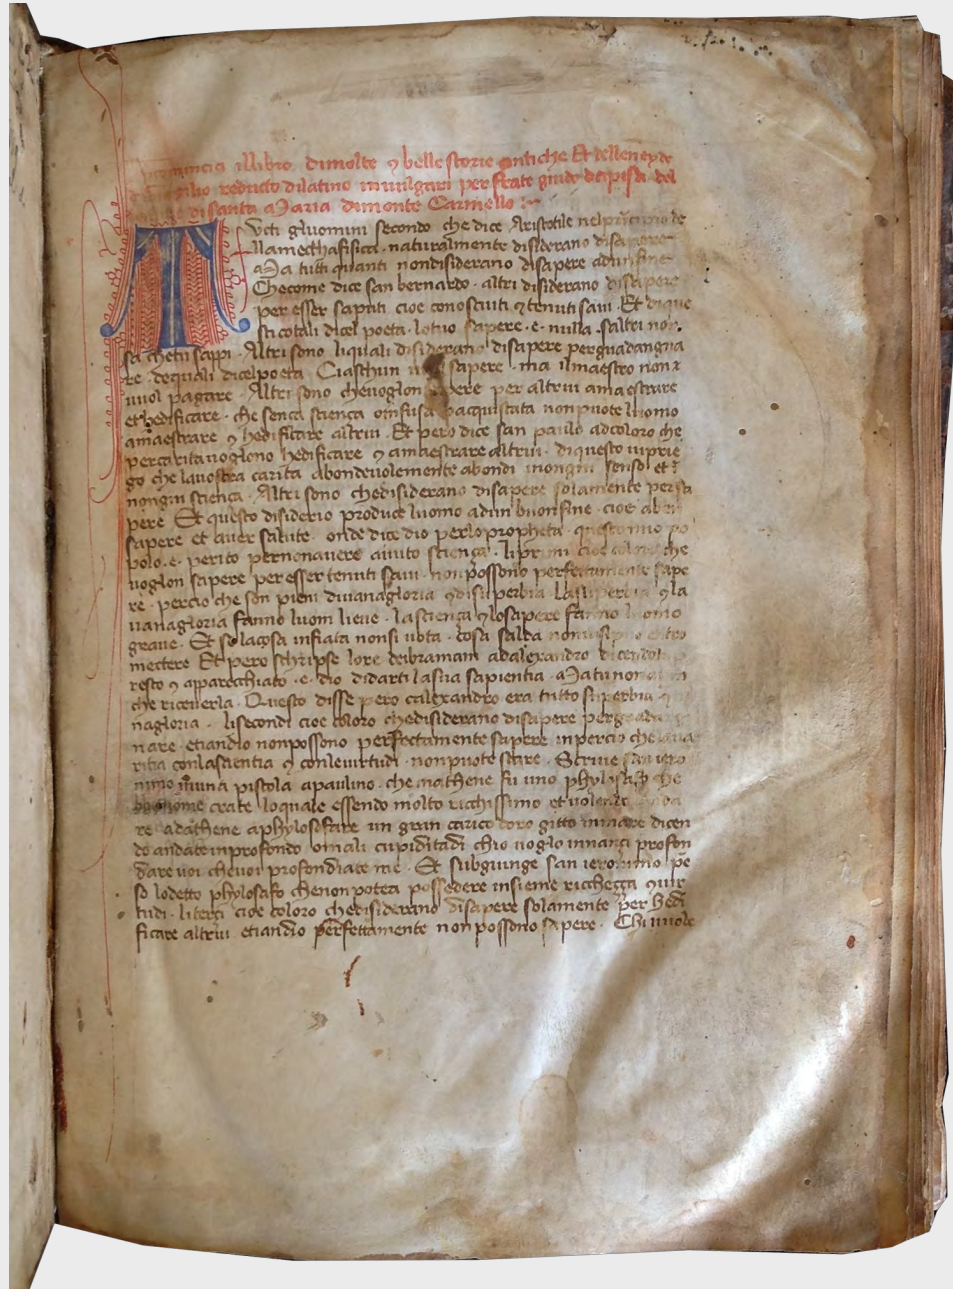 illibro dimolte ⁊ belle storie antiche Et delleneyde
reducto dilatino in uulgari per frate guido dapisa del
disanta Maria dimonte Carmello
Tucti gluomini secondo che dice Aristotile nel de
llamethafisica · naturalmente disiderano disapere
Ma tutti quanti nondisiderano disapere adun fine
Checome dice san bernardo · altri disiderano disapere
per esser saputi cioe conosciuti ⁊ tenuti saui · Et di que
sti cotali dice l poeta · lo tuo sapere · e · nulla · saltri non
sa che tu sappi · Altri sono liquali disiderano disapere perguadangna
re · dequali dicel poeta Ciaschun sapere · ma ilmaestro non
uuol pagare · Altri sono cheuoglon per altrui amaestrare
et hedificare · che senca scienca o infusa o acquistata non puote luomo
amaestrare ⁊ hedificare altrui · Et pero dice san paulo adcoloro che
percarita uoglono hedificare ⁊ amaestrare altrui · diquesto ui prie
go che lauostra carita abondeuolemente abondi inongni senso et ī
nongni scienca · Altri sono chedisiderano disapere solamente persa
pere Et questo disiderio produce luomo adun buon fine · cioe
sapere et auer salute · onde dice dio perlo propheta · mio po
polo · e · perito pernonauere auuto scienca · li primi cioe che
uoglon sapere per esser tenuti saui · non possono perfectamente sape
re · percio che son pieni diuanagloria ⁊ disuperbia · ⁊ la
uanagloria fanno luom lieue · la scienca ⁊ losapere fanno luomo
graue · Et so lacosa infiata nonsi cosa salda
mectere Et pero schripse lore deibramani adalexandro dicendo
resto ⁊ apparecchiato · e · dio didarti lasua sapientia · Ma tu non
che riceuerla · Questo disse pero calexandro era tutto superbia
nagloria · lisecondi cioe coloro chedisiderano disapere
nare · etiandio nonpossono perfectamente sapere inpercio che
ritia conlascientia ⁊ conleuirtudi · nonpuote stare · Scriue san iero
nimo inuna pistola apaulino · che mathene fu uno che
crate loquale essendo molto ricchissimo et uolendo
re adathene aphylosofare un gran carico doro gitto dicen
do andate inprofondo o mali cupiditadi chio uoglo innanci profon
dare uoi cheuoi profondiate me · Et subgiunge san ieronimo pe
so lodetto phylosafo chenon potea possedere insieme riccheçça ⁊ uir
tudi · li terci cioe coloro chedisiderano disapere solamente per hedi
ficare altrui etiandio perfettamente non possono sapere · Chi uuole